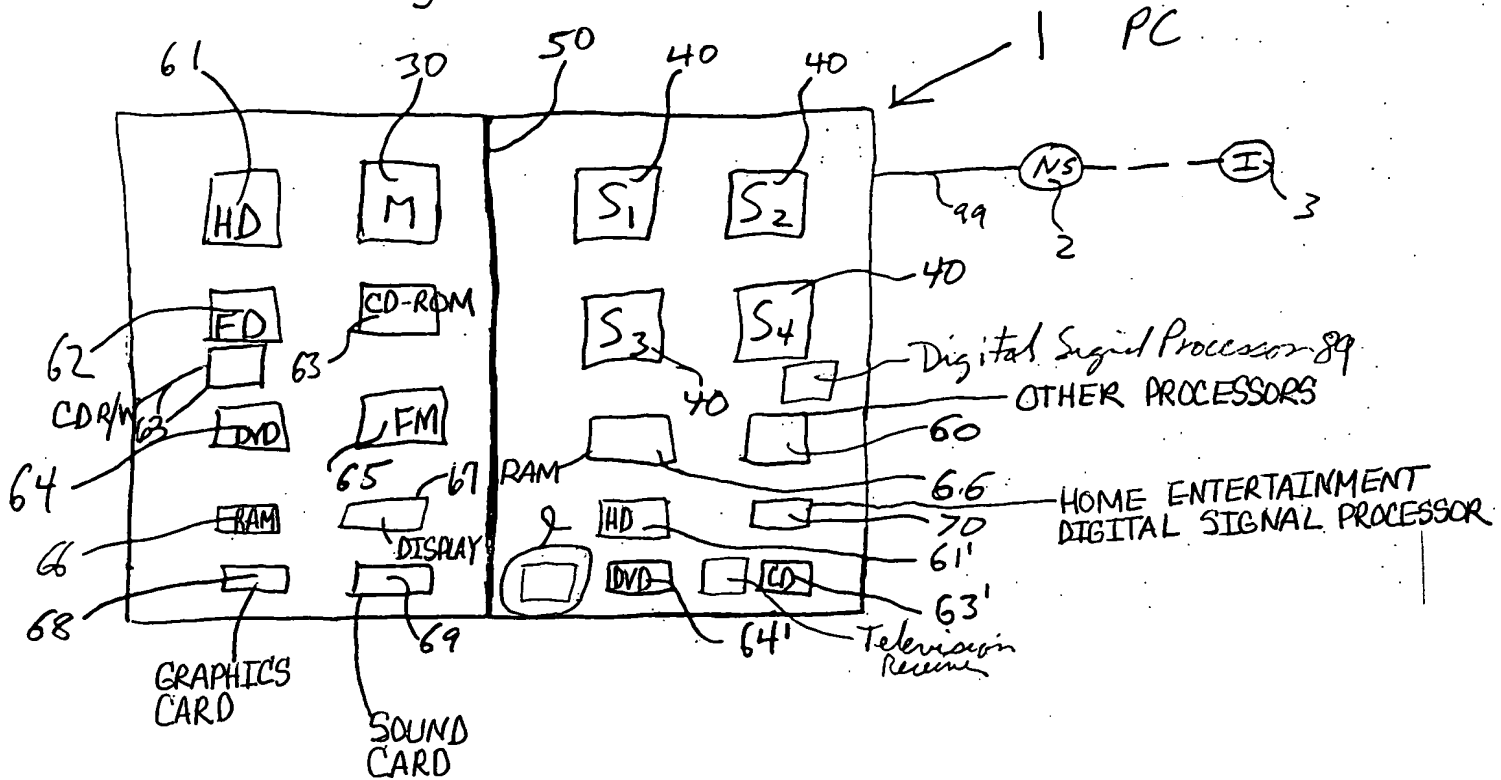 1 PC
61
30
50
40
40
HD
M
S1
S2
NS
I
99
2
3
62
FD
CD-ROM
63
S3
S4
40
40
Digital Signal Processor 89
OTHER PROCESSORS
CDR/W
63
DVD
FM
60
64
65
67
RAM
66
HOME ENTERTAINMENT
DIGITAL SIGNAL PROCESSOR
RAM
66
DISPLAY
HD
70
61'
68
69
DVD
CD
63'
64'
Television
Receiver
GRAPHICS
CARD
SOUND
CARD